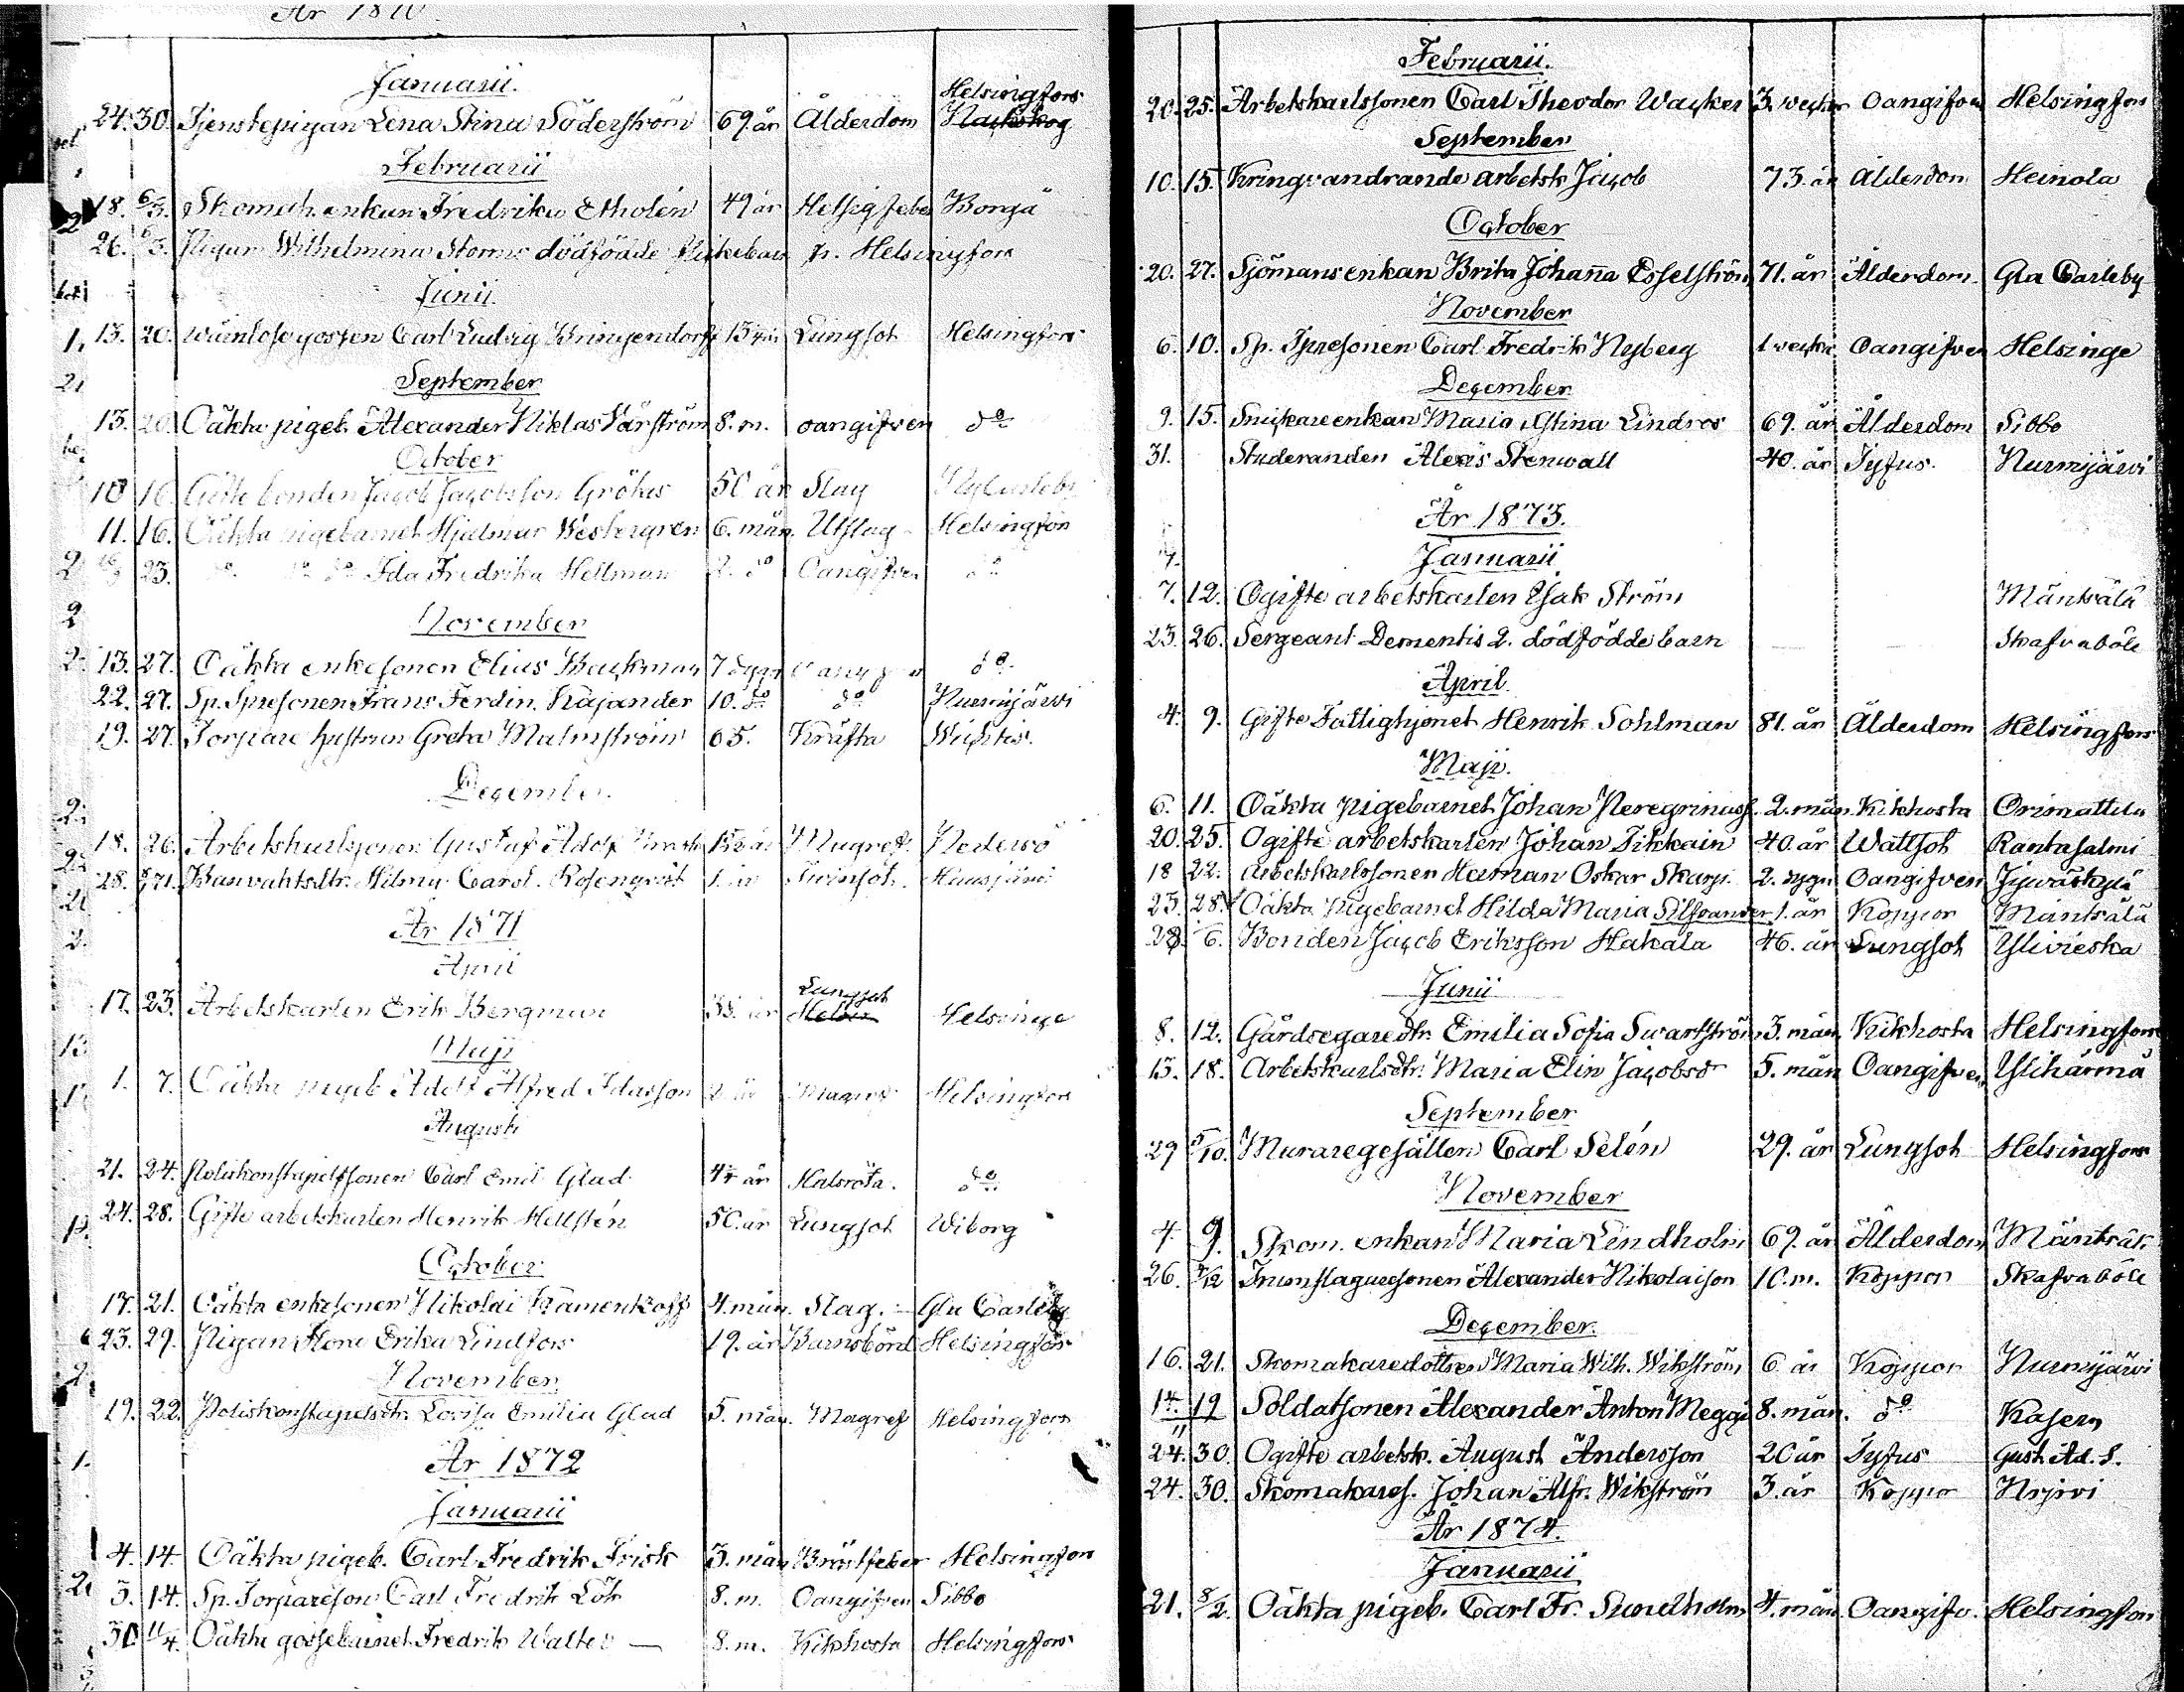 År 1870.
Januarii.
Helsingfors
24. 30. Tjenstepigan Lena Stina Söderström 69 år Ålderdom
Februarii
18. 6/3. Skomak. enkan Fredrika Etholén 49 år Borgå
26. 6/3. Pigan Wilhelmina Storms dödfödde flickebarn fr. Helsingfors
Junii
13. 20. Wärnlöse gossen Carl Ludvig 13 år Lungsot Helsingfors
September
13. 20. Oäkta pigeb. Alexander Niklas Wårström 8. m. oangifven do
October
10 16. Gifte bonden Jacob Jacobsson 50 år Slag Nycarleby
11. 16. Oäkta pigebarnet Hjalmar Westergren 6. mån. Utslag Helsingfors
23. do do do Ida Fredrika Hellman 2. do Oangifven do
November
13. 27. Oäkta enkesonen Elias Backman 7 dygn oangifven do
22. 27. Sp. Spnesonen Frans Ferdin. Kajander 10. do do Nurmijärvi
19. 27. Torpare hustrun Greta Malmström 65. Kräfta Wichtis.
December
18. 26. Arbetskarlssonen Gustaf Adolf Magref. Nedervö
28. 71. Banvaktsdtr. Hilma Carol. Rosenqvist 1. år Hausjärvi
År 1871
April
Lungsot
17. 23. Arbetskarlen Erik Bergman 38. år Helsinge
Maji
1. 7. Oäkta pigeb. Adolf Alfred Idasson 2 år Magref Helsingfors
Augusti
21. 24. Poliskonstapelssonen Carl Emil Glad 4 år Halsröta. do
24. 28. Gifte arbetskarlen Henrik Hellstén 50. år Lungsot Wiborg
October
17. 21. Oäkta enkesonen Nikolai Kamenkoff 4. mån. Slag. Gla Carleby
23. 29. Pigan Erika Lindfors 19. år Barnsbörd Helsingfors
November
19. 22. Poliskonstapelsdtr. Lovisa Emilia Glad 5. mån. Magref Helsingfors
År 1872
Januarii
4. 14. Oäkta pigeb. Carl Fredrik Frisk 3. mån Bröstfeber Helsingfors
5. 14. Sp. Torpareson Carl Fredrik Löf 8. m. Oangifven Sibbo
30 11/4. Oäkta gossebarnet Fredrik Walter — 8. m. Kikhosta Helsingfors
Februarii.
20. 25. Arbetskarlssonen Carl Theodor Wacker 3. veckor Oangifven Helsingfors
September
10. 15. Kringvandrande arbetsk Jacob 73. år Ålderdom Heinola
October
20. 27. Sjömansenkan Brita Johanna Esselström 71. år Ålderdom Gla Carleby
November
6. 10. Sp. Spnesonen Carl Fredrik Nyberg 1 vecka Oangifven Helsinge
December
9. 15. Snickareenkan Maria Stina Lindros 69. år Ålderdom Sibbo
31. Studeranden Alexis Stenwall 40. år Tyfus. Nurmijärvi
År 1873.
Januarii
7. 12. Ogifte arbetskarlen Isak Ström Mäntsälä
23. 26. Sergeant Dementis 2. dödfödde barn Skafvaböle
April
4. 9. Gifte Fattighjonet Henrik Sohlman 81. år Ålderdom Helsingfors
Maji.
6. 11. Oäkta pigebarnet Johan Peregrinus 2. mån. Kikhosta Orimattila
20. 25. Ogifte arbetskarlen Johan Tikkain 40. år Wattsot Rantasalmi
18 22. Arbetskarlssonen Herman Oskar Skarp. 2. dygn Oangifven Jyväskylä
23. 28. Oäkta pigebarnet Hilda Maria Silfvander 1. år Koppor Mäntsälä
28. 6. Bonden Jacob Eriksson Hakala 46. år Lungsot Ylivieska
Junii
8. 12. Gårdsegaredtr. Emilia Sofia Swartström 3. mån Kikhosta Helsingfors
13. 18. Arbetskarlsdtr. Maria Elin Jacobsdr 5. mån Oangifven Ylihärmä
September
29 5/10. Muraregesällen Carl Selén 29. år Lungsot Helsingfors
November
4. 9. Skom. enkan Maria Lindholm 69. år Ålderdom Mäntsälä
26. 7/12 Trumslagaresonen Alexander Nikolaison 10. m. Koppor Skafvaböle
December.
16. 21. Skomakaredottren Maria Wilh. Wikström 6 år Koppor Nurmijärvi
14. 19 Soldatsonen Alexander Anton Meggi 8. mån. do Kasern
24. 30. Ogifte arbetsk. August Andersson 20 år Tyfus Gust. Ad. S.
24. 30. Skomakares. Johan Alfr. Wikström 3. år Koppor Nrjrvi
År 1874.
Januarii
21. 8/2. Oäkta pigeb. Carl Fr. Sundholm 4. mån. Oangifv. Helsingfors